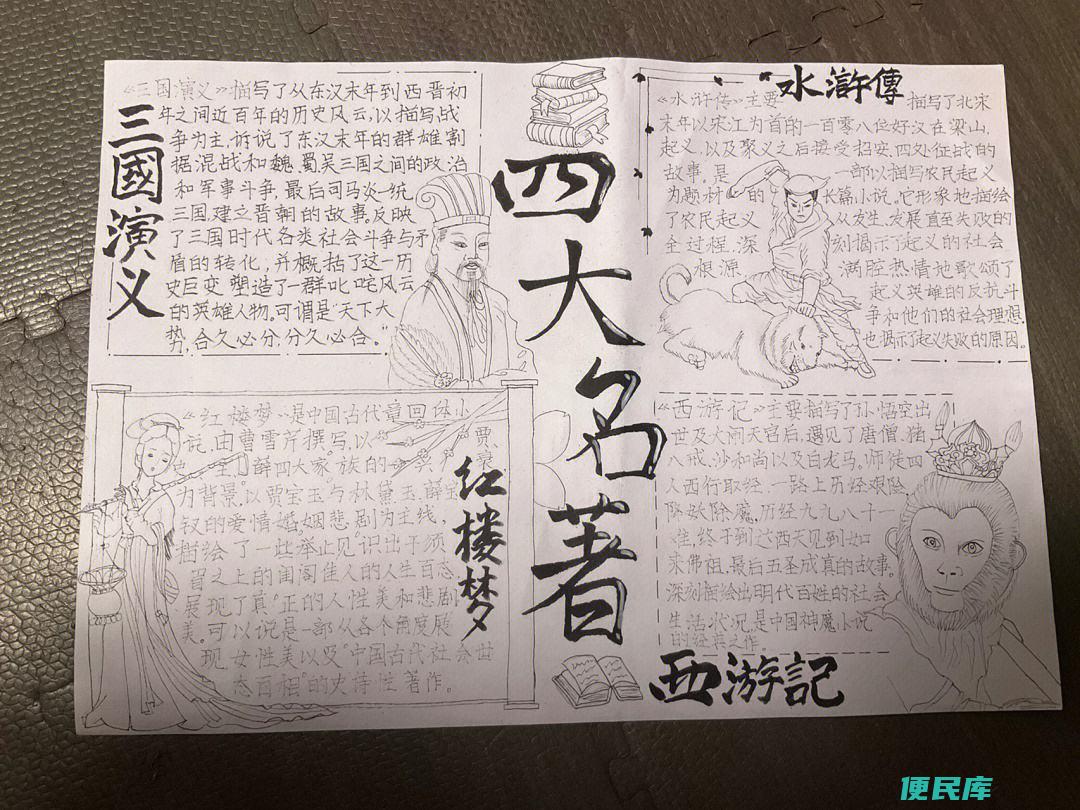 三國演义
《三国演义》描写了从东汉末年到西晋初
年之间近百年的历史风云,以描写战
争为主,诉说了东汉末年的群雄割
据混战和魏、蜀、吴三国之间的政治
和军事斗争,最后司马炎一统
三国,建立晋朝的故事,反映
了三国时代各类社会斗争与矛
盾的转化,并概括了这一历
史巨变,塑造了一群叱咤风云
的英雄人物。可谓是“天下大
势,合久必分,分久必合。”
四大名著
水滸傳
《水浒传》主要描写了北宋
末年以宋江为首的一百零八位好汉在梁山
起义,以及聚义之后接受招安、四处征战的
故事。是一部以描写农民起义
为题材的长篇小说。它形象地描绘
了农民起义从发生、发展直至失败的
全过程,深刻揭示了起义的社会
根源满腔热情地歌颂了
起义英雄的反抗斗
争和他们的社会理想,
也揭示了起义失败的原因。
红楼梦
《红楼梦》是中国古代章回体小
说,由曹雪芹撰写,以贾、
史、王、薛四大家族的兴衰
为背景,以贾宝玉与林黛玉、薛宝
钗的爱情婚姻悲剧为主线,
描绘了一些举止见识出于须
眉之上的闺阁佳人的人生百态
展现了真正的人性美和悲剧
美。可以说是一部从各个角度展
现女性美以及中国古代社会世
态百相的史诗性著作。
《西游记》主要描写了孙悟空出
世及大闹天宫后,遇见了唐僧、猪
八戒、沙和尚以及白龙马。师徒四
人西行取经,一路上历经艰险,
降妖除魔,历经九九八十一
难,终于到达西天见到如
来佛祖,最后五圣成真的故事。
深刻描绘出明代百姓的社会
生活状况是中国神魔小说
的经典之作。
西游記
便民库